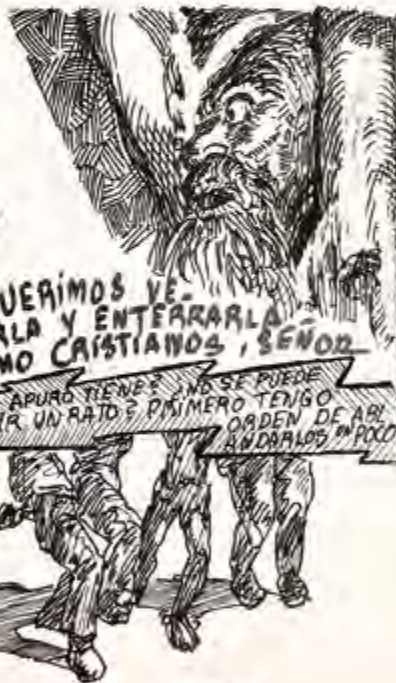 QUERIMOS VE-
RLA Y ENTERRARLA
MO CRISTIANOS, SEÑOR
APURO TIENE? ¿NO SE PUEDE
IR UN RATO? PRIMERO TENGO
ORDEN DE ABL
ANDARLOS UN POCO